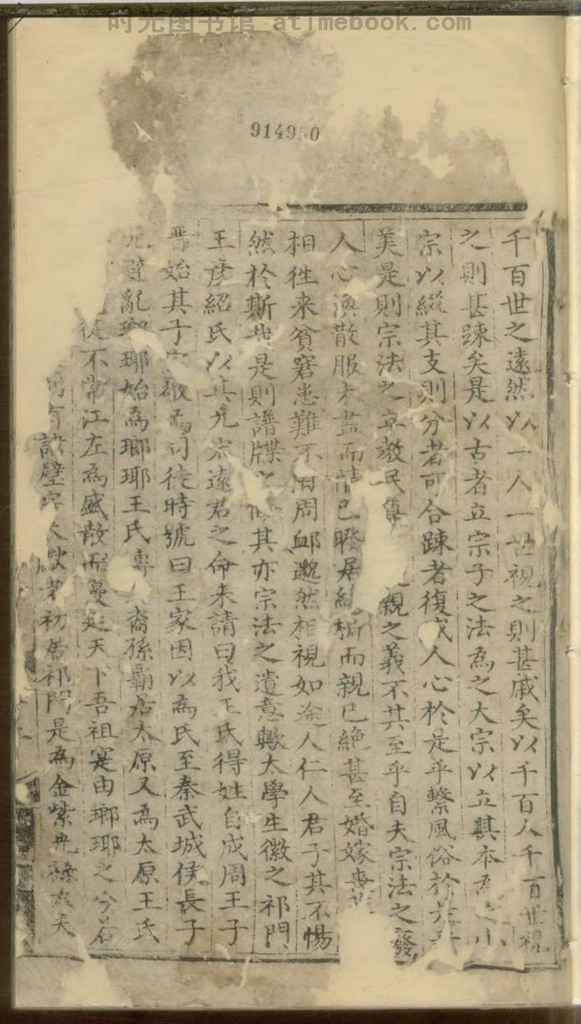 时光图书馆 atimebook.com
914950
千百世之遠然以一人一世視之則甚戚矣以千百人千百世視
之則甚踈矣是以古者立宗子之法為之大宗以立其本為之小
宗以縱其支則分者可合踈者復戚人心於是乎繫風俗於是乎
美是則宗法之立教民 親之義不其至乎自夫宗法之廢
人心渙散服未盡而情已睽居結楯而親已絕甚至婚嫁喪
相徃来貧窮患難不相周邮邈然相視如途人仁人君子其不惕
然於斯哉是則譜牒之 其亦宗法之遺意歟太學生徽之祁門
王彦紹氏以其兄宗遠君之命来請曰我王氏得姓自成周王子
晋始其子宗敬為司徒時號曰王家因以為氏至秦武城侯長子
元避亂瑯琊始為瑯琊王氏 裔孫霸居太原又為太原王氏
徒不常江左為盛散而蔓延天下吾祖寔由瑯琊之
有諱璧字大獻者初居祁門是為金紫光祿大夫